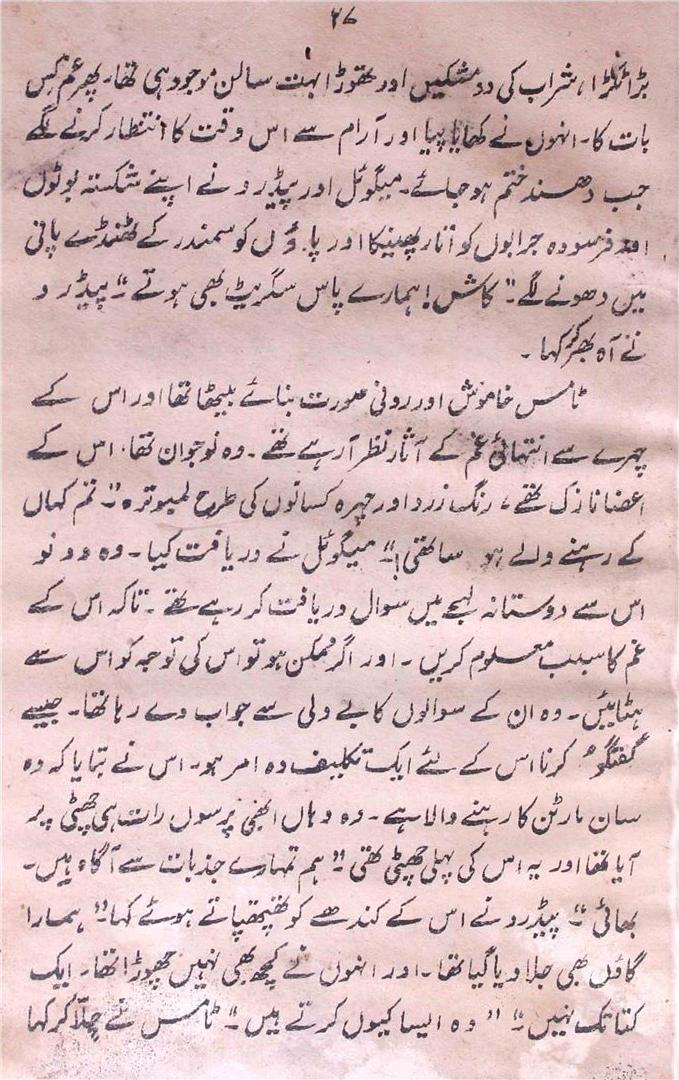 ۲۷
بڑا ٹکڑا، شراب کی دو مشکیں اور تھوڑا بہت سالن موجود ہی تھا۔ پھر غم کس
بات کا۔ انہوں نے کھایا پیا اور آرام سے اس وقت کا انتظار کرنے لگے
جب دھند ختم ہو جائے۔ میگوئل اور پیڈرو نے اپنے شکستہ بوٹوں
اور فرسودہ جرابوں کو اتار پھینکا اور پاؤں کو سمندر کے ٹھنڈے پانی
میں دھونے لگے۔" کاش! ہمارے پاس سگریٹ بھی ہوتے "۔ پیڈرو
نے آہ بھر کر کہا ۔
ٹامس خاموش اور رونی صورت بنائے بیٹھا تھا اور اس کے
چہرے سے انتہائی غم کے آثار نظر آ رہے تھے ۔ وہ نوجوان تھا۔ اس کے
اعضا نازک تھے، رنگ زرد اور چہرہ کسانوں کی طرح لمبوترہ "۔ تم کہاں
کے رہنے والے ہو ساتھی!" میگوئل نے دریافت کیا۔ وہ دونو
اس سے دوستانہ لہجے میں سوال دریافت کر رہے تھے ۔ تاکہ اس کے
غم کا سبب معلوم کریں ۔ اور اگر ممکن ہو تو اس کی توجہ کو اس سے
ہٹائیں۔ وہ ان کے سوالوں کا بے دلی سے جواب دے رہا تھا۔ جیسے
گفتگو کرنا اس کے لئے ایک تکلیف دہ امر ہو۔ اس نے بتایا کہ وہ
سان مارٹن کا رہنے والا ہے۔ وہ وہاں ابھی پرسوں رات ہی چھٹی پر
آیا تھا اور یہ اس کی پہلی چھٹی تھی "۔ ہم تمہارے جذبات سے آگاہ ہیں۔
بھائی "۔ پیڈرو نے اس کے کندھے کو تھپتھپاتے ہوئے کہا۔" ہمارا
گاؤں بھی جلا دیا گیا تھا ۔ اور انہوں نے کچھ بھی نہیں چھوڑا تھا۔ ایک
کتا تک نہیں "۔ " وہ ایسا کیوں کرتے ہیں "۔ ٹامس نے چلّا کر کہا